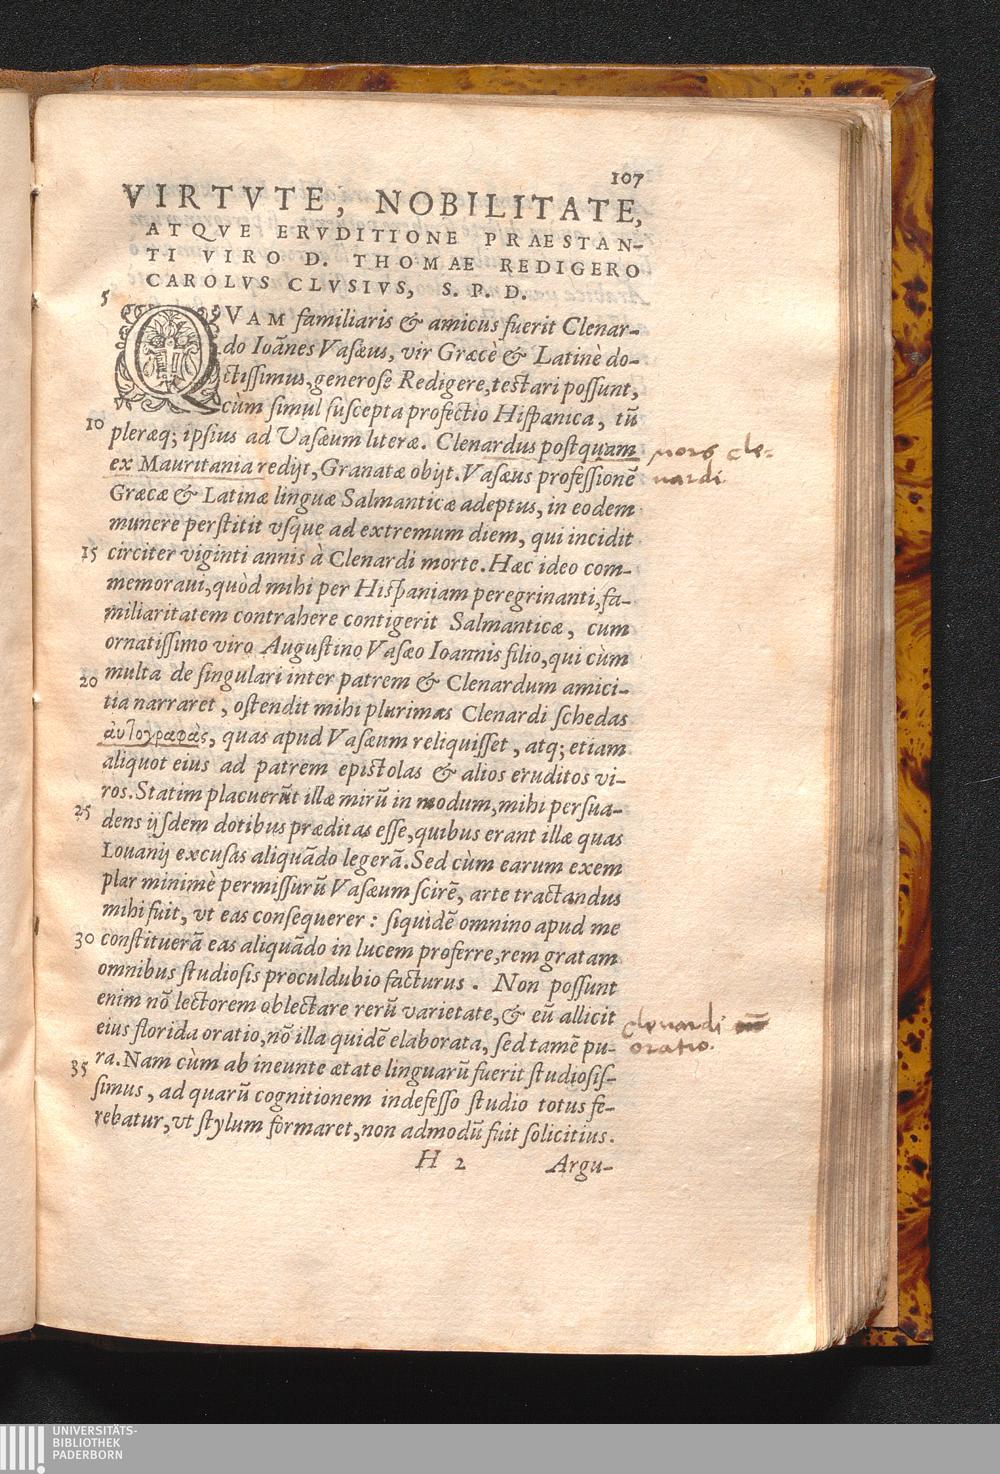 107
VIRTVTE, NOBILITATE,
ATQVE ERVDITIONE PRAESTAN-
TI VIRO D. THOMAE REDIGERO
CAROLVS CLVSIVS, S. P. D.
5
QVAM familiaris & amicus fuerit Clenar-
do Ioãnes Vasæus, vir Græcè & Latinè do-
ctissimus, generose Redigere, testari possunt,
cùm simul suscepta profectio Hispanica, tũ
10 pleræq; ipsius ad Vasæum literæ. Clenardus postquam
ex Mauritania redijt, Granatæ obijt. Vasæus professionẽ
mors Cle-
nardi
Græcæ & Latinæ linguæ Salmanticæ adeptus, in eodem
munere perstitit vsque ad extremum diem, qui incidit
15 circiter viginti annis à Clenardi morte. Hæc ideo com-
memoraui, quòd mihi per Hispaniam peregrinanti, fa-
miliaritatem contrahere contigerit Salmanticæ, cum
ornatissimo viro Augustino Vasæo Ioannis filio, qui cùm
20 multa de singulari inter patrem & Clenardum amici-
tia narraret, ostendit mihi plurimas Clenardi schedas
αὐτογραφὰς, quas apud Vasæum reliquisset, atq; etiam
aliquot eius ad patrem epistolas & alios eruditos vi-
ros. Statim placuerũt illæ mirũ in modum, mihi persua-
25 dens ijsdem dotibus præditas esse, quibus erant illæ quas
Louanij excusas aliquãdo legerã. Sed cùm earum exem
plar minimè permissurũ Vasæum scirẽ, arte tractandus
mihi fuit, vt eas consequerer: siquidẽ omnino apud me
30 constituerã eas aliquãdo in lucem proferre, rem gratam
omnibus studiosis proculdubio facturus. Non possunt
enim nõ lectorem oblectare rerũ varietate, & eũ allicit
eius florida oratio, nõ illa quidẽ elaborata, sed tamẽ pu-
Clenardi
oratio.
35 ra. Nam cùm ab ineunte ætate linguarũ fuerit studiosis-
simus, ad quarũ cognitionem indefesso studio totus fe-
rebatur, vt stylum formaret, non admodũ fuit solicitius.
H 2 Argu-
UNIVERSITÄTS-
BIBLIOTHEK
PADERBORN